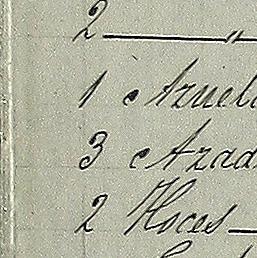 2 ——— "
1 Azuela
3 Azad
2 Hoces —